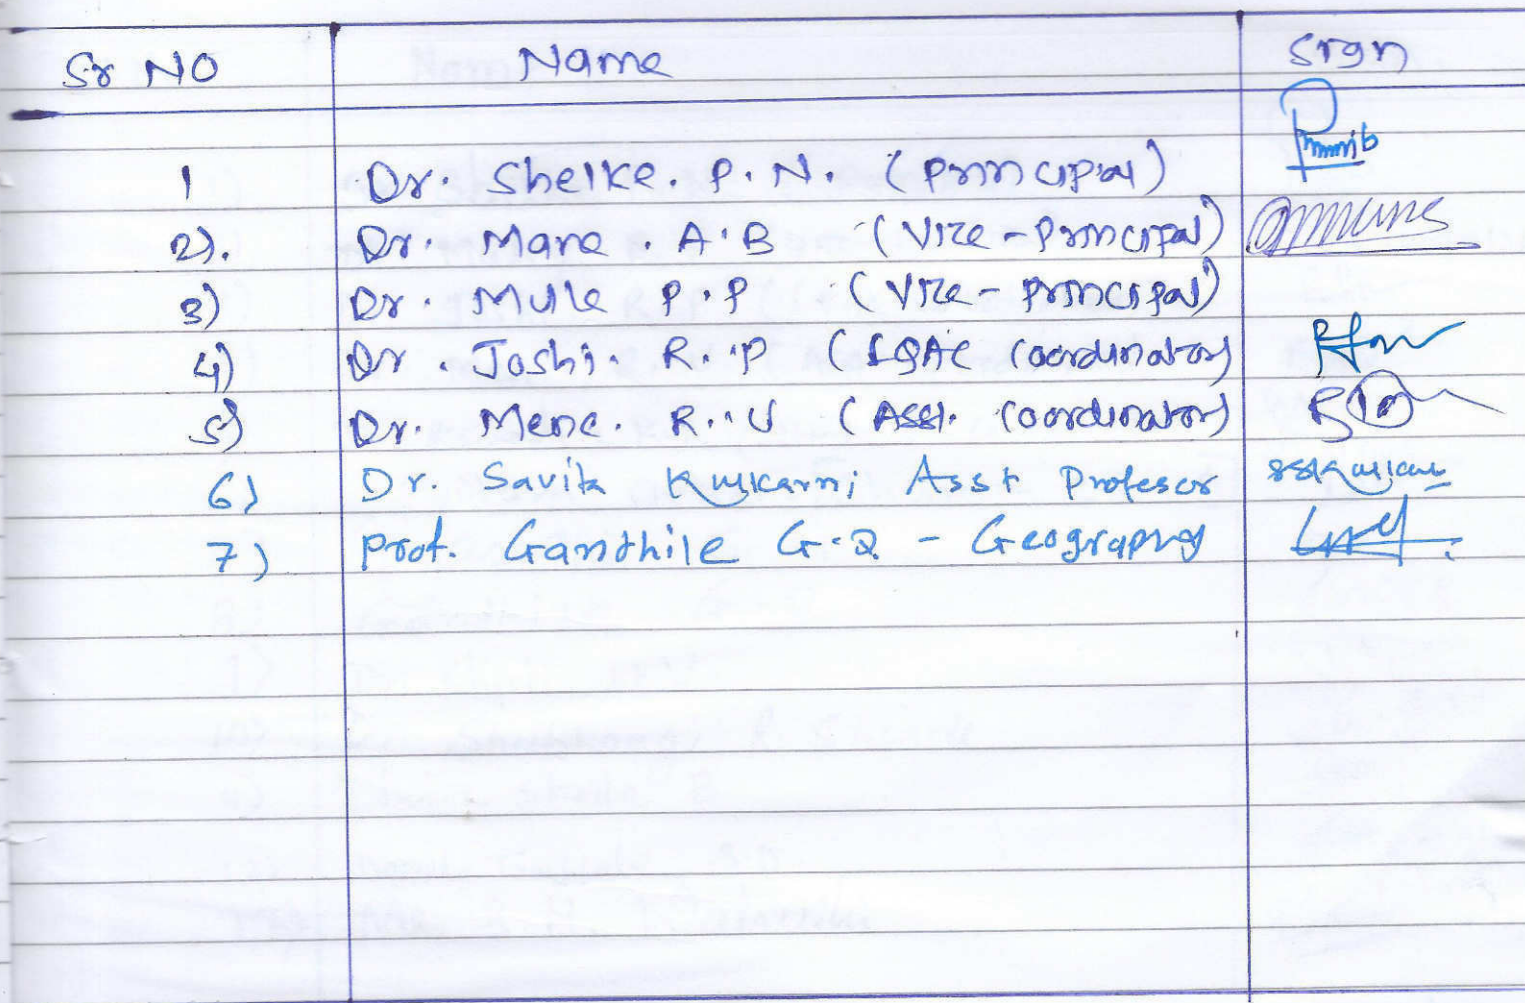 Sr NO Name Sign
1 Dr. Shelke. P. N. (Principal)
2). Dr. Mane. A.B (Vice-Principal)
3) Dr. Mule P.P (Vice-principal)
4) Dr. Joshi. R.P (IQAC Coordinator)
5) Dr. Mene. R.U (Asst. Coordinator)
6) Dr. Savita Kulkarni Asst Profesor
7) Prof. Gandhile G.R - Geography